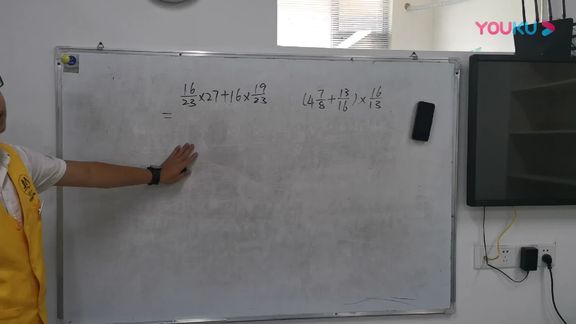 YOUKU
16/23×27+16×19/23
(4 7/8+13/16)×16/13
=